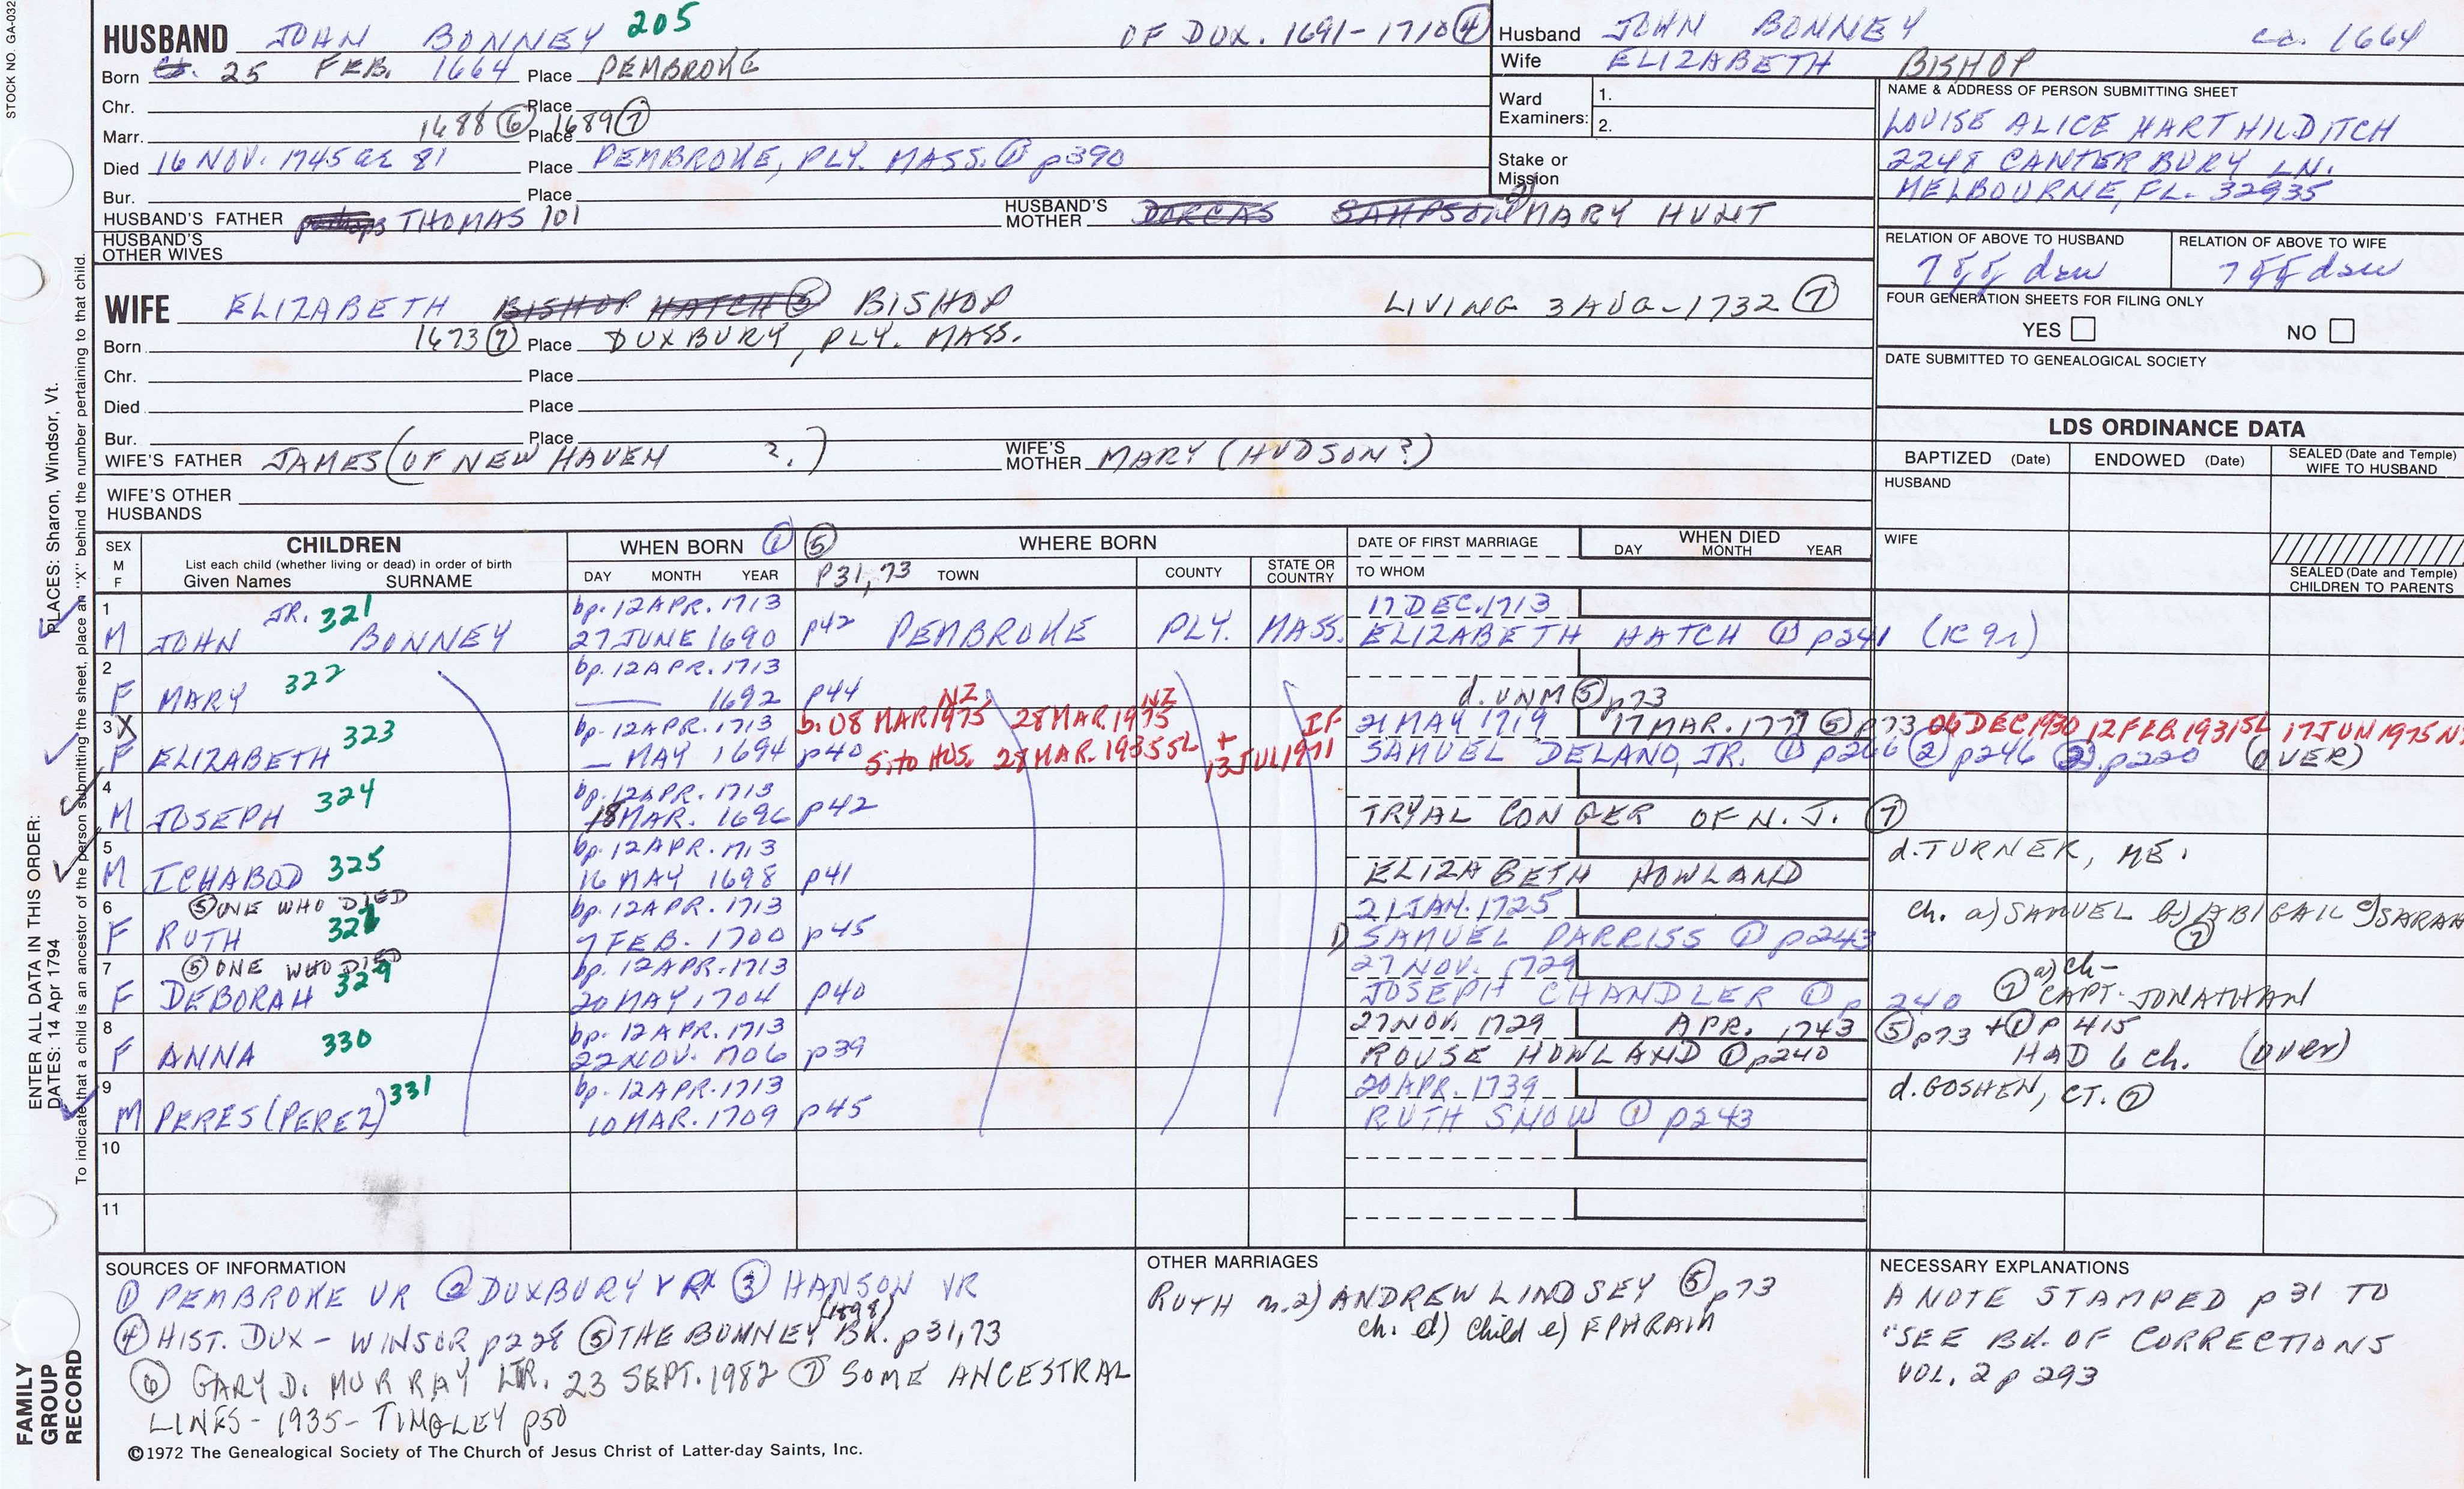 STOCK NO. GA-032
HUSBAND JOHN BONNEY 205 OF DUX. 1691-1710 ④
Born 25 FEB. 1664 Place PEMBROKE
Chr. Place
Marr. 1688 ⑥ Place 1689 ⑦
Died 16 NOV. 1745 ae 81 Place PEMBROKE, PLY. MASS. ① p390
Bur. Place
HUSBAND'S FATHER perhaps THOMAS 101 HUSBAND'S MOTHER DORCAS SAMPSON MARY HUNT
HUSBAND'S OTHER WIVES
Husband JOHN BONNEY ca. 1664
Wife ELIZABETH BISHOP
Ward Examiners: 1.
2.
Stake or Mission
NAME & ADDRESS OF PERSON SUBMITTING SHEET
LOUISE ALICE HART HILDITCH
2248 CANTERBURY LN.
MELBOURNE, FL. 32935
RELATION OF ABOVE TO HUSBAND RELATION OF ABOVE TO WIFE
FOUR GENERATION SHEETS FOR FILING ONLY
YES NO
DATE SUBMITTED TO GENEALOGICAL SOCIETY
WIFE ELIZABETH BISHOP HATCH BISHOP LIVING 3 AUG-1732 ⑦
Born 1673 ⑦ Place DUXBURY, PLY. MASS.
Chr. Place
Died Place
Bur. Place
WIFE'S FATHER JAMES (OF NEW HAVEN ?.) WIFE'S MOTHER MARY (HUDSON?)
WIFE'S OTHER HUSBANDS
LDS ORDINANCE DATA
BAPTIZED (Date) ENDOWED (Date) SEALED (Date and Temple) WIFE TO HUSBAND
HUSBAND
WIFE
SEALED (Date and Temple) CHILDREN TO PARENTS
SEX M F CHILDREN
List each child (whether living or dead) in order of birth
Given Names SURNAME
WHEN BORN ① ⑤ WHERE BORN
DAY MONTH YEAR p31,73 TOWN COUNTY STATE OR COUNTRY
DATE OF FIRST MARRIAGE
TO WHOM
WHEN DIED
DAY MONTH YEAR
1 JR. 321 bp. 12 APR. 1713 17 DEC. 1713
M JOHN BONNEY 27 JUNE 1690 p42 PEMBROKE PLY. MASS. ELIZABETH HATCH ① p241
2 322 bp. 12 APR. 1713
F MARY 1692 p44 d. UNM ⑤ p73
3 X 323 bp. 12 APR. 1713 b. 08 MAR 1975 NZ 28 MAR. 1975 NZ IF 21 MAY 1719 17 MAR. 1777 ⑤ p73 06 DEC 1930 12 FEB 1931 SL 17 JUN 1975 N
F ELIZABETH MAY 1694 p40 S. to HUS. 28 MAR. 1935 SL + 13 JUL 1971 SAMUEL DELANO, JR. ① p266 ② p246 p220 (OVER)
4 324 bp. 12 APR. 1713
M JOSEPH 18 MAR. 1696 p42 TRYAL CONGER OF N. J. ⑦
5 325 bp. 12 APR. 1713 d. TURNER, ME.
M ICHABOD 16 MAY 1698 p41 ELIZABETH HOWLAND
6 ⑤ ONE WHO DIED bp. 12 APR. 1713 21 JAN. 1725 ch. a) SAMUEL b) ABIGAIL c) SARAH ⑦
F RUTH 7 FEB. 1700 p45 SAMUEL PARRISS ① p243
7 ⑤ ONE WHO DIED 329 bp. 12 APR. 1713 27 NOV. 1729 ⑦ a) ch-
F DEBORAH 20 MAY 1704 p40 JOSEPH CHANDLER ① p 240 CAPT. JONATHAN
8 330 bp. 12 APR. 1713 27 NOV. 1729 APR. 1743 ⑤ p73 + ① p 415
F ANNA 22 NOV. 1706 p39 ROUSE HOWLAND ① p240 HAD 6 ch. (over)
9 331 bp. 12 APR. 1713 20 APR. 1739 d. GOSHEN, CT. ⑦
M PERES (PEREZ) 10 MAR. 1709 p45 RUTH SNOW ① p243
10
11
SOURCES OF INFORMATION
① PEMBROKE VR ② DUXBURY VR ③ HANSON VR
④ HIST. DUX - WINSOR p228 ⑤ THE BONNEY BK. (1898) p31,73
⑥ GARY D. MURRAY LTR. 23 SEPT. 1982 ⑦ SOME ANCESTRAL
LINES - 1935 - TINGLEY p50
©1972 The Genealogical Society of The Church of Jesus Christ of Latter-day Saints, Inc.
OTHER MARRIAGES
RUTH m. 2) ANDREW LINDSEY ⑤ p73
ch. d) child e) EPHRAIM
NECESSARY EXPLANATIONS
A NOTE STAMPED p31 TO
"SEE BK. OF CORRECTIONS
VOL. 2 p 293
FAMILY GROUP RECORD
ENTER ALL DATA IN THIS ORDER:
DATES: 14 Apr 1794 PLACES: Sharon, Windsor, Vt.
To indicate that a child is an ancestor of the person submitting the sheet, place an "X" behind the number pertaining to that child.